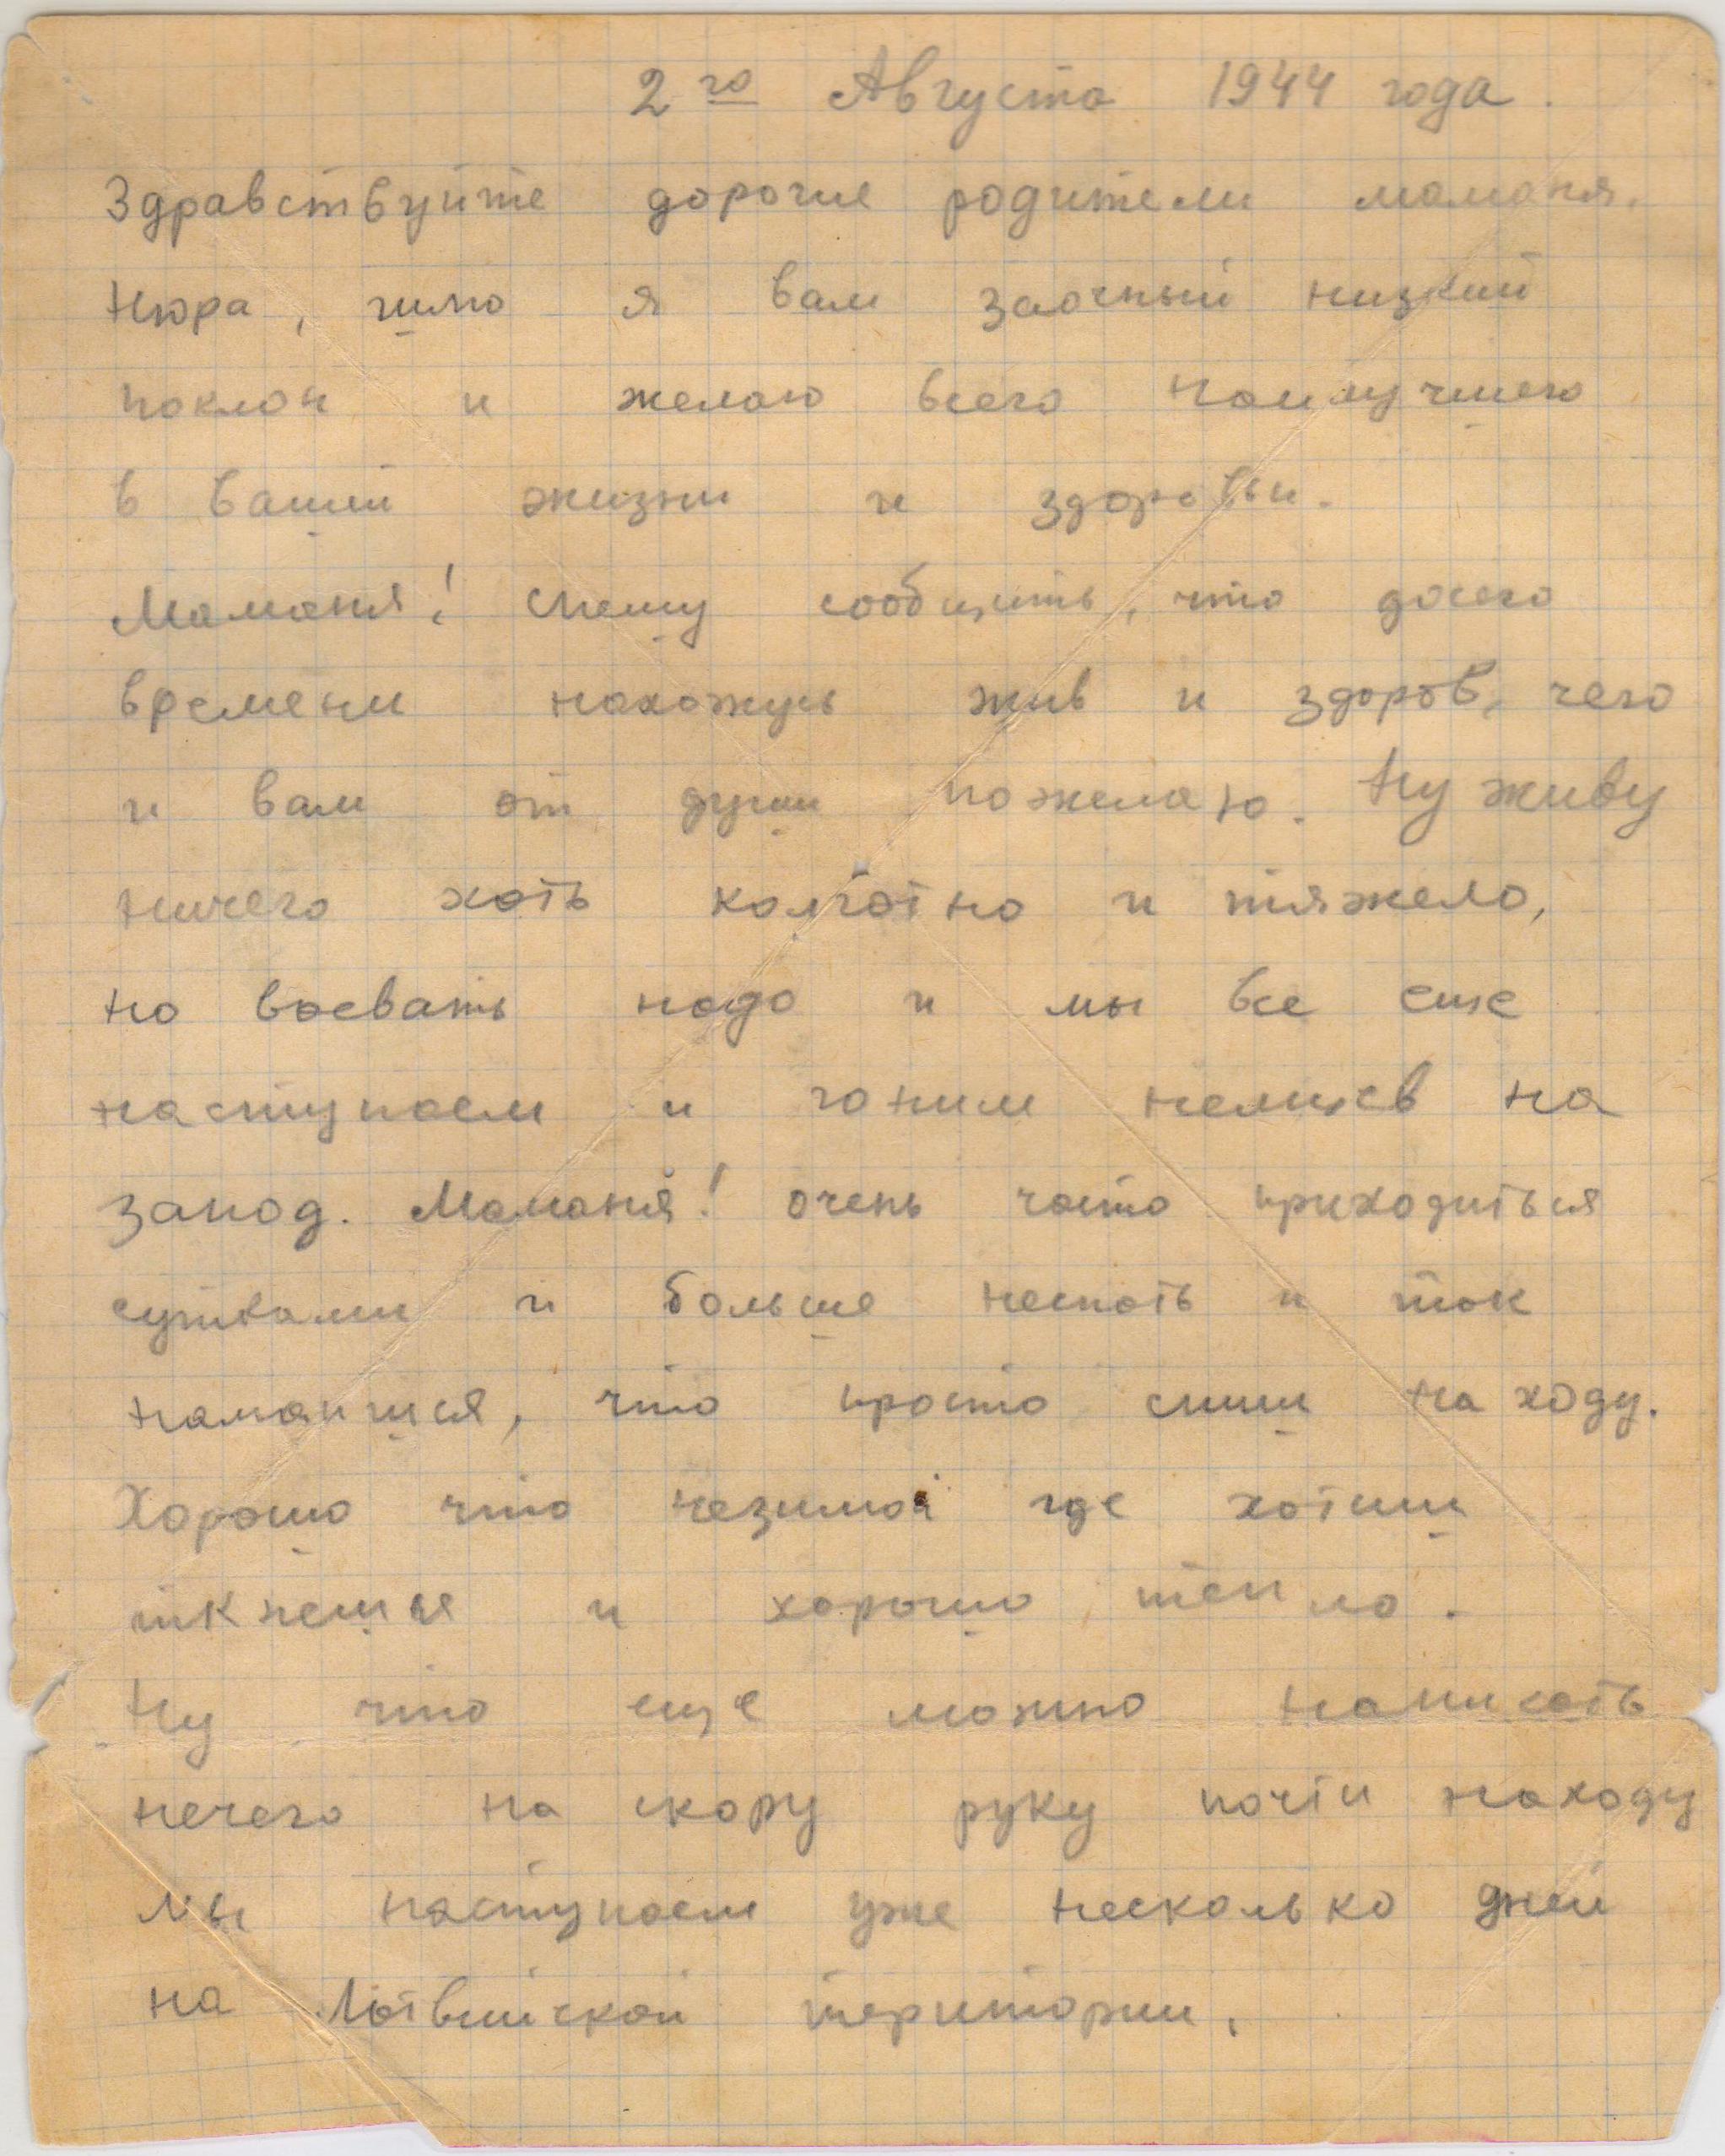 2го Августа 1944 года.
Здравствуйте дорогие родители маманя,
Нюра, шлю я вам заочный низкий
поклон и желаю всего наилучшего
в вашей жизни и здоровьи.
Маманя! Спешу сообщить, что досего
времени нахожусь жив и здоров, чего
и вам от души пожелаю. Ну живу
ничего хоть колготно и тяжело,
но воевать надо и мы все еще
наступаем и гоним немцев на
запод. Маманя! очень часто приходиться
сутками и больше неспать и так
намаишся, что просто спиш на ходу.
Хорошо что незимой где хотиш
ткнешся и хорошо тепло.
Ну что еще можно написать
нечего на скору руку почти находу
мы наступаем уже несколько дней
на Латвийской територии,